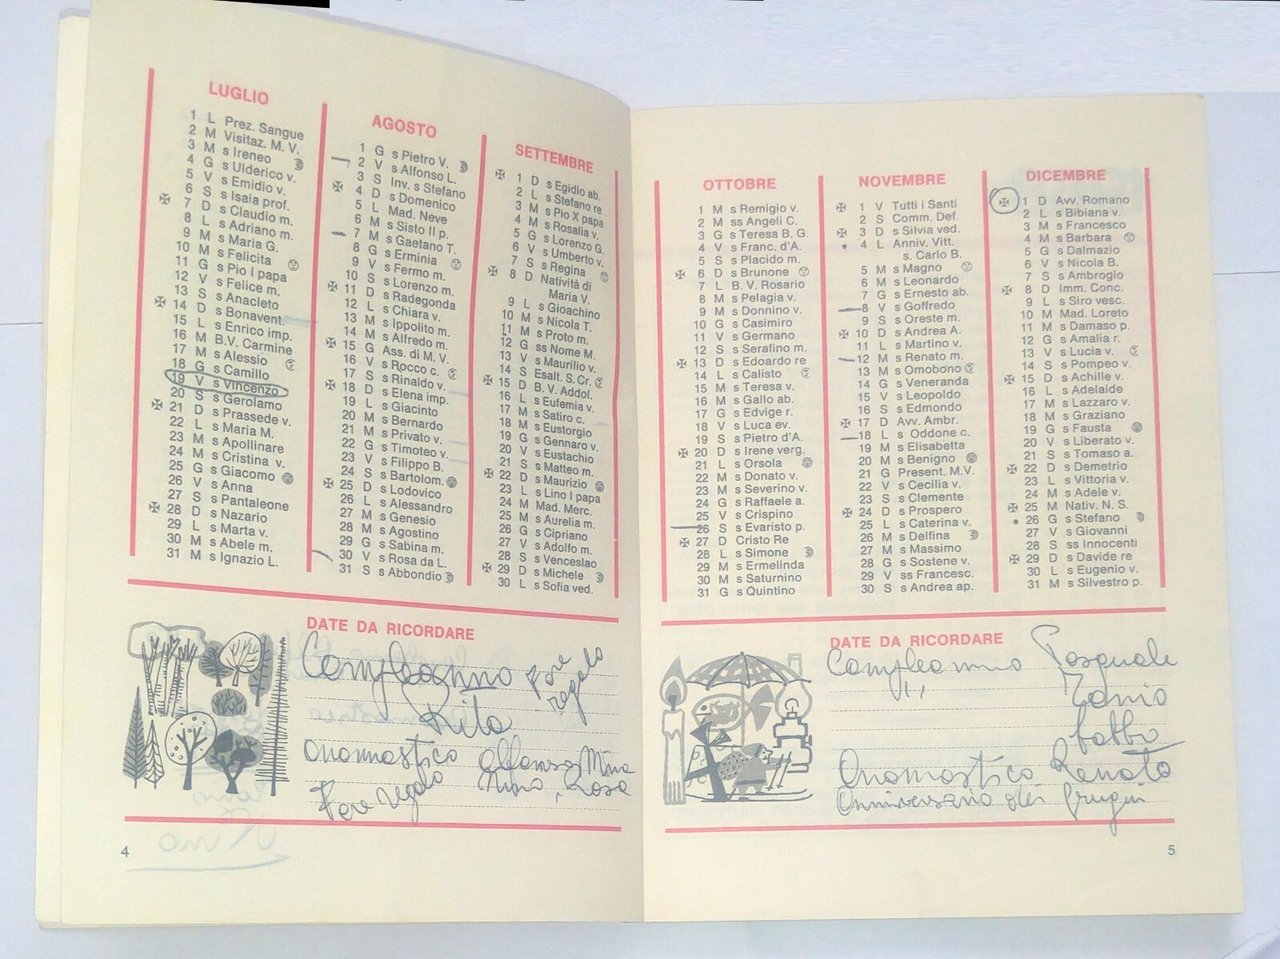 LUGLIO
1 L Prez. Sangue
2 M Visitaz. M. V.
3 M s Ireneo
4 G s Ulderico v.
5 V s Emidio v.
6 S s Isaia prof.
✠ 7 D s Claudio m.
8 L s Adriano m.
9 M s Maria G.
10 M s Felicita
11 G s Pio I papa
12 V s Felice m.
13 S s Anacleto
✠ 14 D s Bonavent.
15 L s Enrico imp.
16 M B.V. Carmine
17 M s Alessio
18 G s Camillo
19 V s Vincenzo
20 S s Gerolamo
✠ 21 D s Prassede v.
22 L s Maria M.
23 M s Apollinare
24 M s Cristina v.
25 G s Giacomo
26 V s Anna
27 S s Pantaleone
✠ 28 D s Nazario
29 L s Marta v.
30 M s Abele m.
31 M s Ignazio L.
AGOSTO
1 G s Pietro V.
2 V s Alfonso L.
3 S Inv. s Stefano
✠ 4 D s Domenico
5 L Mad. Neve
6 M s Sisto II p.
7 M s Gaetano T.
8 G s Erminia
9 V s Fermo m.
10 S s Lorenzo m.
✠ 11 D s Radegonda
12 L s Chiara v.
13 M s Ippolito m.
14 M s Alfredo m.
✠ 15 G Ass. di M. V.
16 V s Rocco c.
17 S s Rinaldo v.
✠ 18 D s Elena imp.
19 L s Giacinto
20 M s Bernardo
21 M s Privato v.
22 G s Timoteo v.
23 V s Filippo B.
24 S s Bartolom.
✠ 25 D s Lodovico
26 L s Alessandro
27 M s Genesio
28 M s Agostino
29 G s Sabina m.
30 V s Rosa da L.
31 S s Abbondio
SETTEMBRE
✠ 1 D s Egidio ab.
2 L s Stefano re
3 M s Pio X papa
4 M s Rosalia v.
5 G s Lorenzo G.
6 V s Umberto v.
7 S s Regina
✠ 8 D Natività di
Maria V.
9 L s Gioachino
10 M s Nicola T.
11 M s Proto m.
12 G ss Nome M.
13 V s Maurilio v.
14 S Esalt. S. Cr.
✠ 15 D B. V. Addol.
16 L s Eufemia v.
17 M s Satiro c.
18 M s Eustorgio
19 G s Gennaro v.
20 V s Eustachio
21 S s Matteo m.
✠ 22 D s Maurizio
23 L s Lino I papa
24 M Mad. Merc.
25 M s Aurelia m.
26 G s Cipriano
27 V s Adolfo m.
28 S s Venceslao
✠ 29 D s Michele
30 L s Sofia ved.
DATE DA RICORDARE
Compleanno fare
Rita regalo
Onomastico Alfonso, Mina
Fare regalo Nino, Rosa
4
OTTOBRE
1 M s Remigio v.
2 M ss Angeli C.
3 G s Teresa B. G.
4 V s Franc. d'A.
5 S s Placido m.
✠ 6 D s Brunone
7 L B.V. Rosario
8 M s Pelagia v.
9 M s Donnino v.
10 G s Casimiro
11 V s Germano
12 S s Serafino m.
✠ 13 D s Edoardo re
14 L s Calisto
15 M s Teresa v.
16 M s Gallo ab.
17 G s Edvige r.
18 V s Luca ev.
19 S s Pietro d'A.
✠ 20 D s Irene verg.
21 L s Orsola
22 M s Donato v.
23 M s Severino v.
24 G s Raffaele a.
25 V s Crispino
26 S s Evaristo p.
✠ 27 D Cristo Re
28 L s Simone
29 M s Ermelinda
30 M s Saturnino
31 G s Quintino
NOVEMBRE
✠ 1 V Tutti i Santi
2 S Comm. Def.
✠ 3 D s Silvia ved.
• 4 L Anniv. Vitt.
s. Carlo B.
5 M s Magno
6 M s Leonardo
7 G s Ernesto ab.
8 V s Goffredo
9 S s Oreste m.
✠ 10 D s Andrea A.
11 L s Martino v.
12 M s Renato m.
13 M s Omobono
14 G s Veneranda
15 V s Leopoldo
16 S s Edmondo
✠ 17 D Avv. Ambr.
18 L s Oddone c.
19 M s Elisabetta
20 M s Benigno
21 G Present. M.V.
22 V s Cecilia v.
23 S s Clemente
✠ 24 D s Prospero
25 L s Caterina v.
26 M s Delfina
27 M s Massimo
28 G s Sostene v.
29 V ss Francesc.
30 S s Andrea ap.
DICEMBRE
✠ 1 D Avv. Romano
2 L s Bibiana v.
3 M s Francesco
4 M s Barbara
5 G s Dalmazio
6 V s Nicola B.
7 S s Ambrogio
✠ 8 D Imm. Conc.
9 L s Siro vesc.
10 M Mad. Loreto
11 M s Damaso p.
12 G s Amalia r.
13 V s Lucia v.
14 S s Pompeo v.
✠ 15 D s Achille v.
16 L s Adelaide
17 M s Lazzaro v.
18 M s Graziano
19 G s Fausta
20 V s Liberato v.
21 S s Tomaso a.
✠ 22 D s Demetrio
23 L s Vittoria v.
24 M s Adele v.
✠ 25 M Nativ. N. S.
• 26 G s Stefano
27 V s Giovanni
28 S ss Innocenti
✠ 29 D s Davide re
30 L s Eugenio v.
31 M s Silvestro p.
DATE DA RICORDARE
Compleanno Pasquale
" Tonio
babbo
Onomastico Renato
Anniversario dei
5